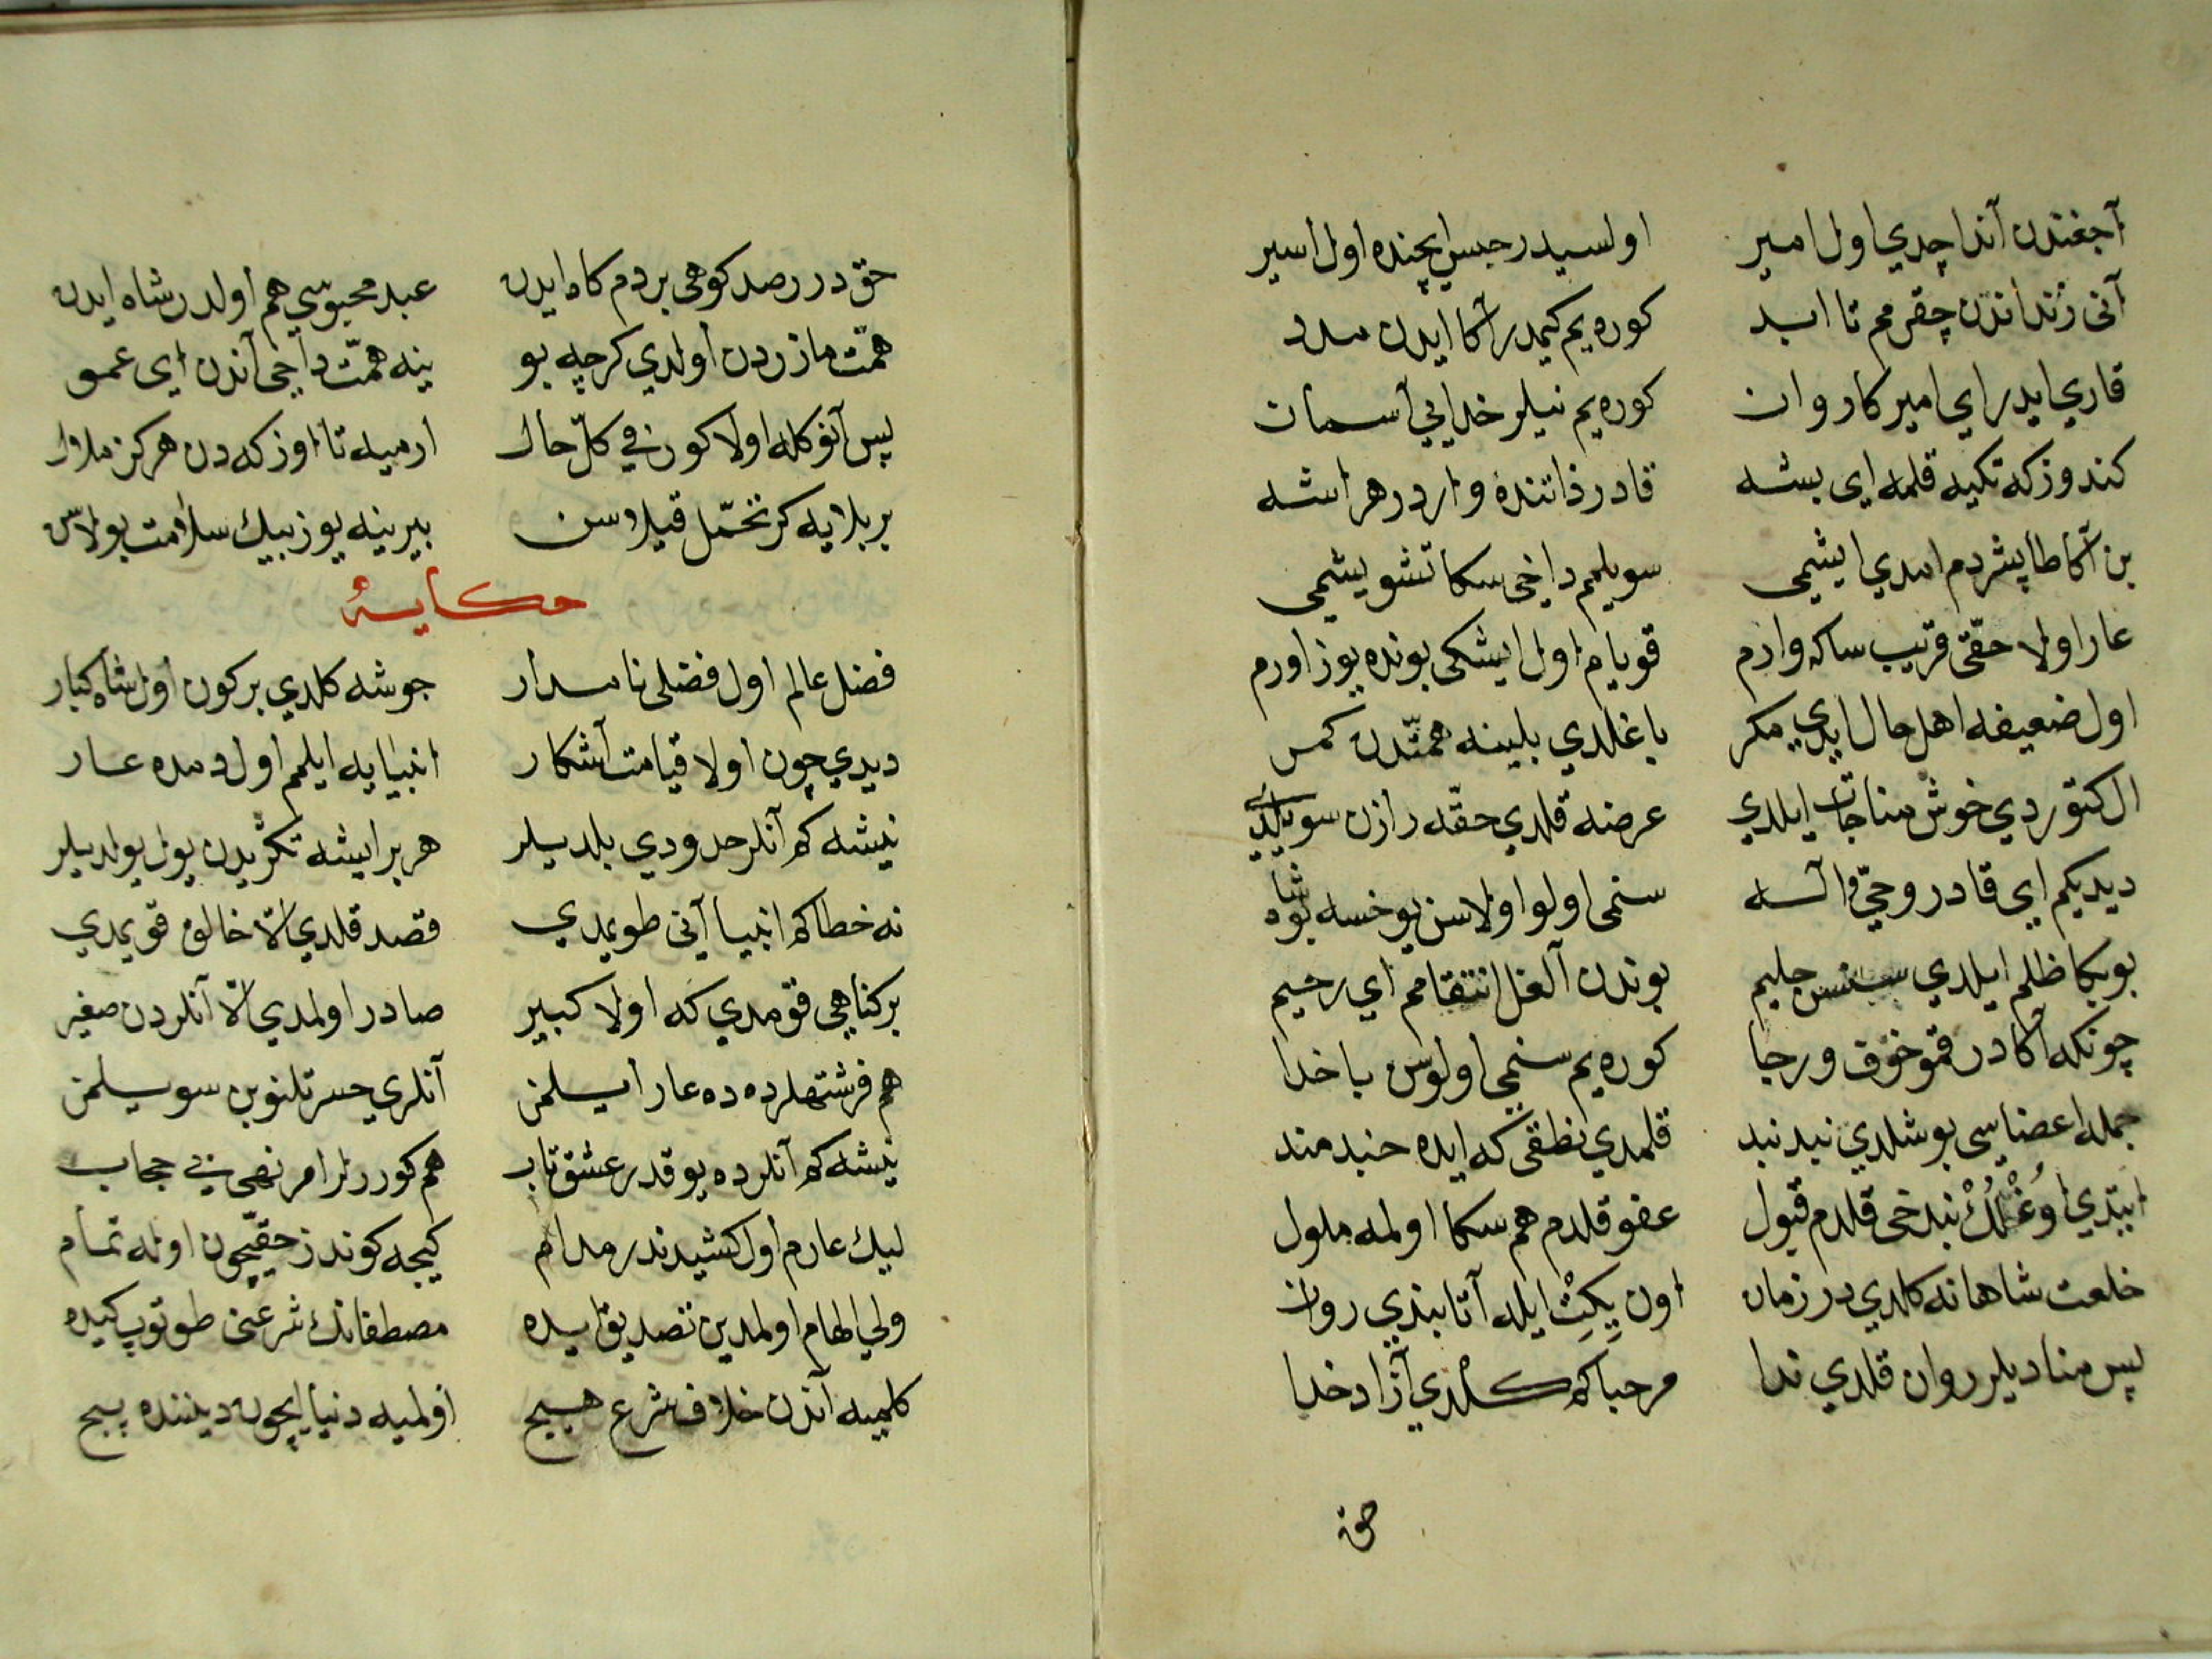 آجغندن آندا چدي اول امير اولسيدر حبس ايچنده اول اسير
آنی زنداندن چقرمم تا ابد كوره يم كيمدر آكا ايدن مدد
قاري ايدر اي امير كاروان كوره يم نيلر خدايئ آسمان
كندوزكه تكيه قلمه اي بشه قادر ذاتنده واردر هر ايشه
بن آكا طاپشردم امدي ايشمی سويلمم داخی سكا تشويشمی
عار اولا حقی قريب ساكه وارم قويام اول ايشكی بونده يوز اورم
اول ضعيفه اهل حال ايدي مكر باغلدي بلينه همتدن كمر
ال كتوردي خوش مناجات ايلدي عرضه قلدي حقه رازن سويلدي
ديديكم اي قادر وحيّ و آله سنمی اولو اولاسن يوخسه بو شاه
بو بكا ظلم ايلدي سنسن حليم بوندن آلغل انتقامم اي رحيم
چونكه آكا در قمو خوف و رجا كوره يم سنمی اولوسن با خدا
جمله اعضاسی بوشلدي بند بند قلمدي نطقی كه ايده حبد مند
ايتدي اوغلمڭ بند خی قلدم قبول عفو قلدم هم سكا اولمه ملول
خلعت شاهانه كلدي در زمان اون يكيت ايله آتا بندي روان
پس مناديلر روان قلدي ندا مرحبا كه كلدي آزاد خدا
حق
حق در رصد كوهی بر دم كاه ايدن عبد محبوسی هم اولدر شاه ايدن
همت مازردن اولدي كرچه بو ينه همت داخی آندن اي عمو
پس آنوكله اولا كور في كلّ حال ارميه تا اوزكه دن هركز ملال
بر بلايه كر تحمّل قيلا سن بيرينه يوز بيك سلامت بولاسن
حكايه
فضل عالم اول فضلی نامدار جوشه كلدي بركون اول شاه كبار
ديدي چون اولا قيامت آشكار انبيايه ايلمم اول دمده عار
نيشه كه آنلر حدودي بلديلر هر بر ايشه تكريدن يول بولديلر
نه خطا كه انبيا آنی طويمدي قصد قلدي الّا خالق قويمدي
بر كناهی قومدي كه اولا كبير صادر اولمدي الّا آنلردن صغير
هم فرشتهلرده ده عار ايلمن آنلري حسرتلنوبن سويلمن
نيشه كه آنلرده يوقدر عشق تاب هم كوررلر امر نهی بی حجاب
ليك عارم اول كشيدندر مدام كيجه كوندز حقيچون اوله تمام
ولي الهام اولمدين تصديق ايده مصطفانك شرعنی طوتوپ كيده
كلميه آندن خلاف شرع هيچ اولميه دنيا ايچون ديننده پيچ